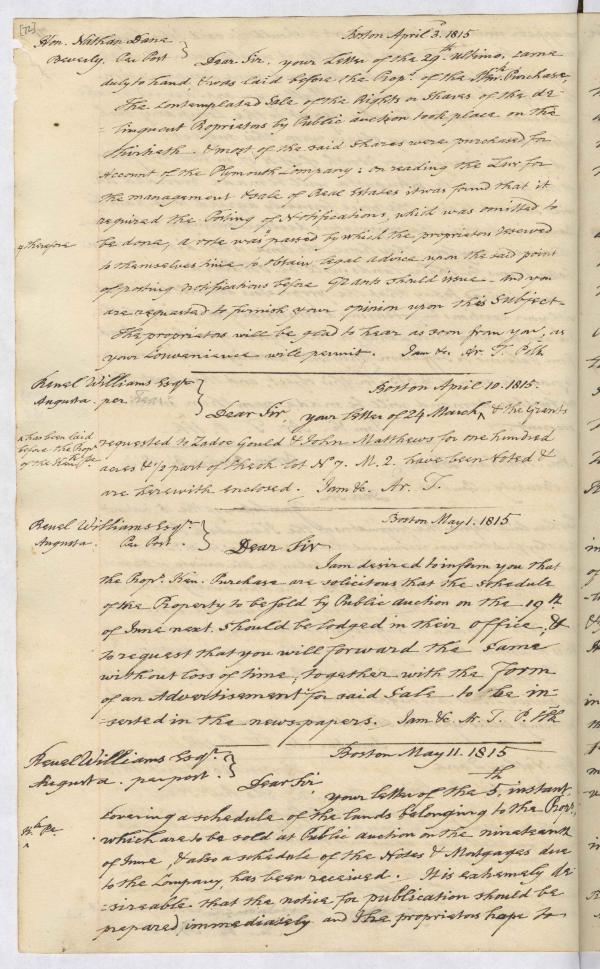 [72]
Boston April 3. 1815
Hon. Nathan Dane
Beverly. Per Post
Dear Sir, your Letter of the 29th ultimo, came
duly to hand, & was laid before the Propr. of the Kenk. Purchase,
The contemplated Sale of the Rights or Shares of the de-
-linquent Proprietors by Public auction took place on the
thirtieth. & most of the said Shares were purchased for
Account of the Plymouth Company: on reading the Law for
the management & Sale of Real Estates it was found that it
required the Posting of Notifications, which was omitted to
be done, a vote was passed by which the proprietors reserved
therefore
to themselves time to obtain legal advice upon the said point
of posting notifications before Grants should issue. and you
are requested to furnish your opinion upon this Subject-
The proprietors will be glad to hear as soon from you, as
your convenience will permit. I am &c. Ar. T. P. Kk
Reuel Williams Esqr.
Augusta. per
Boston April 10. 1815.
Dear Sir, your letter of 24 March, & the Grants
has been laid
before the Propr.
of the Kenk. Pe.
requested to Zadoc Gould & John Matthews for one hundred
acres & 1/2 part of the ck lot No 7. M. 2. have been voted &
are herewith enclosed. I am &c. Ar. T.
Reuel Williams Esqr.
Augusta. Per Post.
Boston May 1. 1815
Dear Sir
I am desired to inform you that
the Propr. Ken. Purchase are solicitous that the Schedule
of the Property to be sold by Public auction on the 19th
of June next. Should be lodged in their office, &
to request that you will forward the same
without loss of time, together with the Form
of an Advertisement for said Sale to be in-
-serted in the newspapers. I am &c. Ar. T. P. Kk
Reuel Williams Esqr.
Augusta. per post.
Boston May 11. 1815
Dear Sir,
your letter of the 5th instant
covering a schedule of the lands belonging to the Propr.
Kk. Pe.
which are to be sold at Public auction on the nineteenth
of June, & also a schedule of the Notes & Mortgages due
to the Company, has been received. It is extremely de-
-sireable that the notice for publication should be
prepared immediately and the proprietors hope to